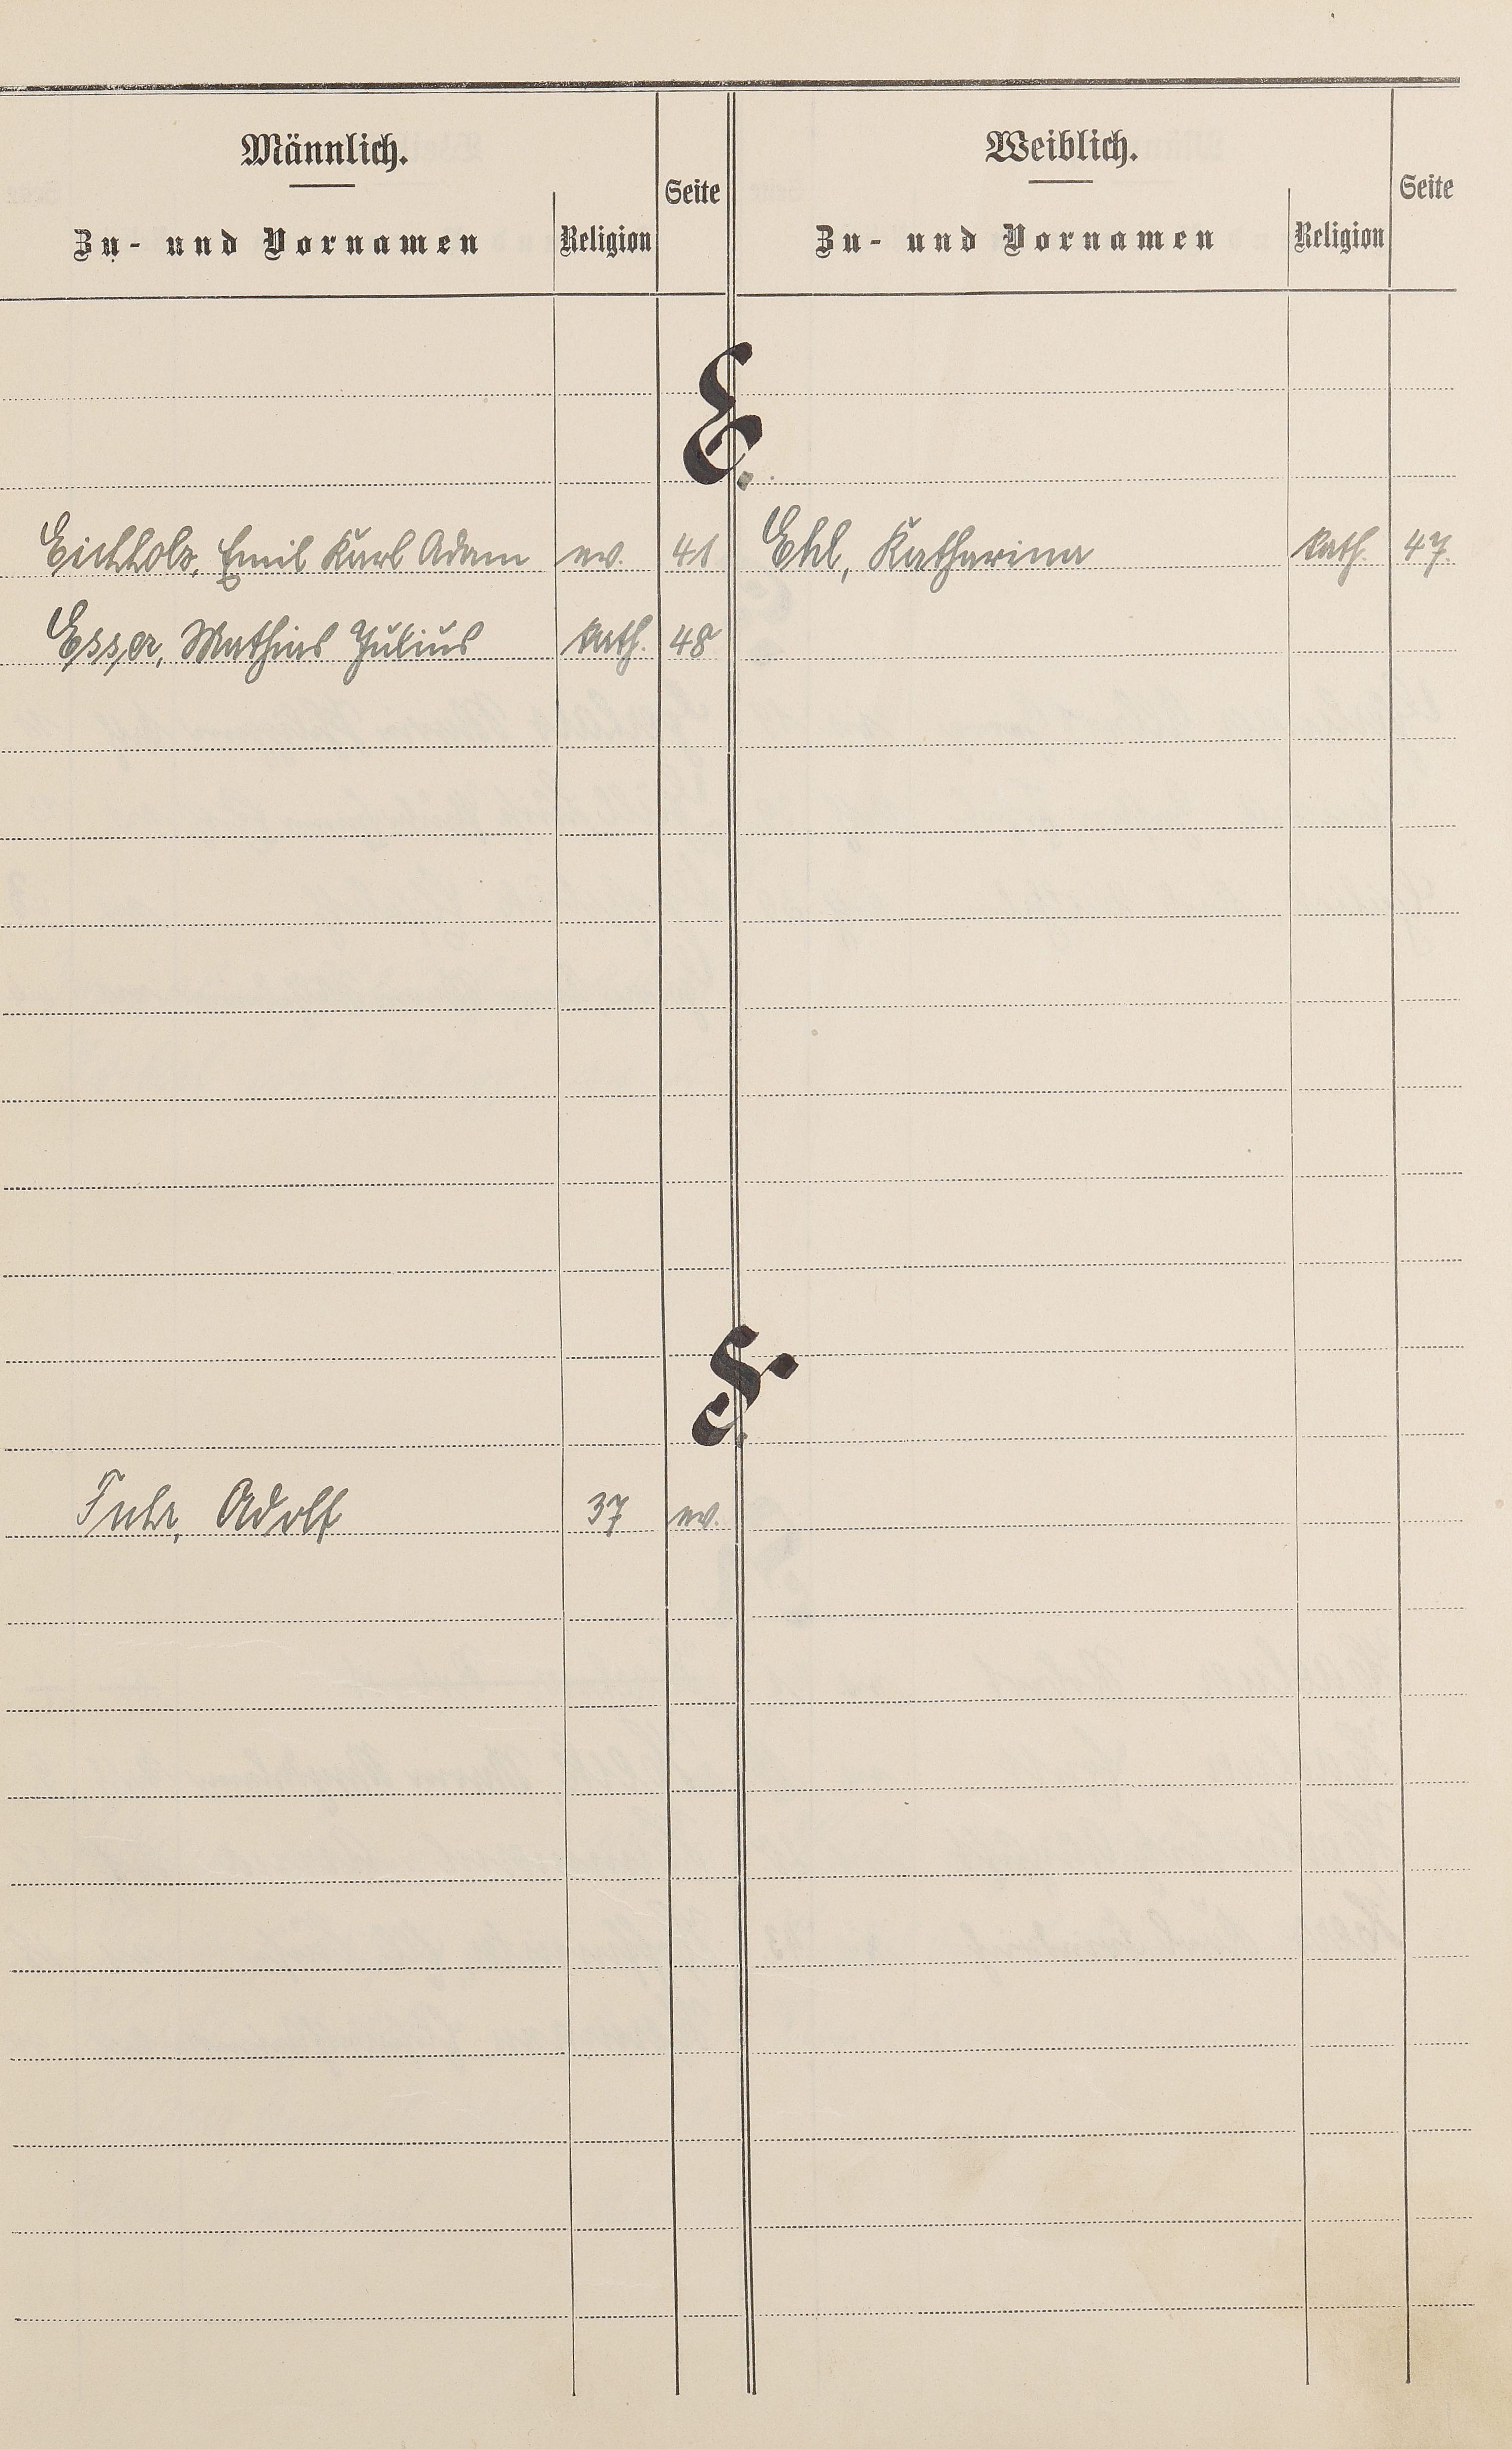 Männlich.
Weiblich.
Seite
Seite
Zu- und Vornamen
Religion
Zu- und Vornamen
Religion
E.
Eichholz, Emil Karl Adam ev. 41 Ehl, Katharina kath. 47.
Esser, Mathias Julius kath. 48
F.
Fuhr, Adolf 37 ev.